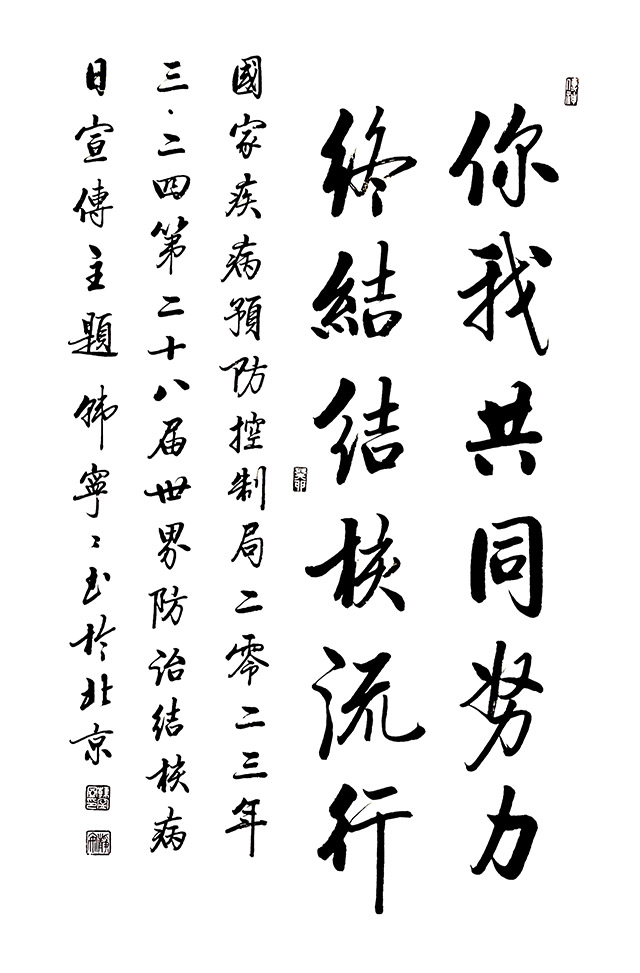 你我共同努力
終結结核流行
癸卯
國家疾病預防控制局二零二三年
三·二四第二十八届世界防治结核病
日宣傳主題 韩寧〻书於北京